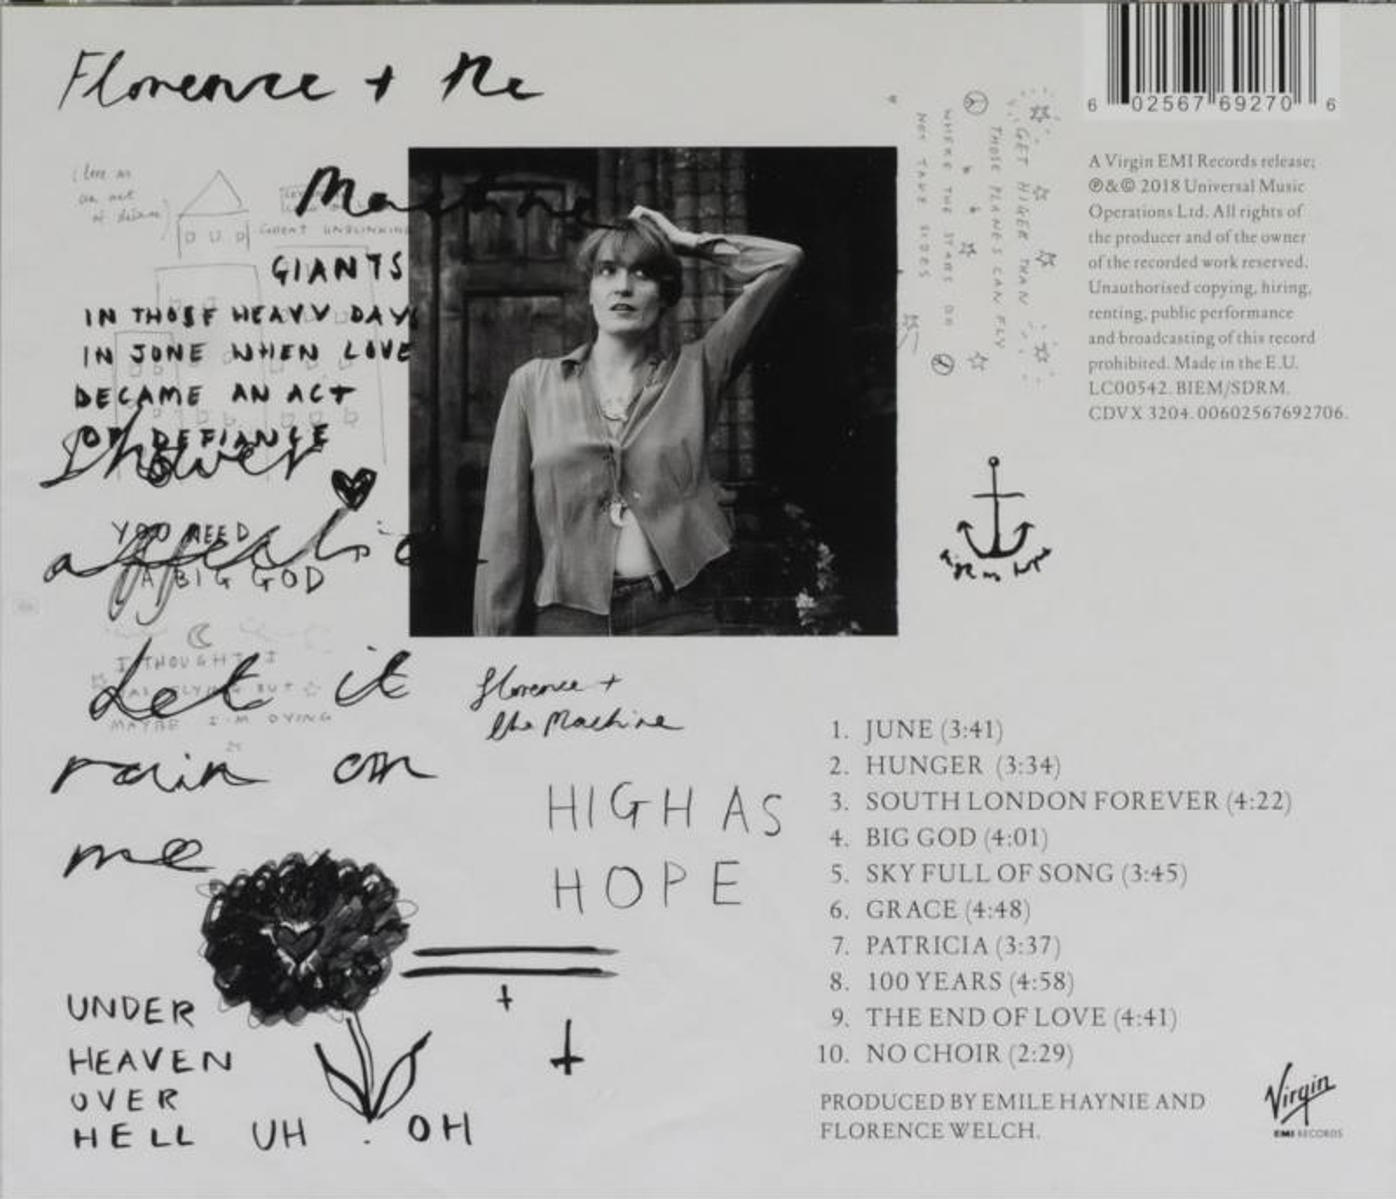 Florence + the
Machine
i love as
an act
of defiance
GREAT UNBLINKING
GIANTS
IN THOSE HEAVY DAYS
IN JUNE WHEN LOVE
BECAME AN ACT
OF DEFIANCE
Shower
affection
YOU NEED
A BIG GOD
Let it
I THOUGHT I
WAS FLYING BUT
MAYBE I'M DYING
rain on
me
UNDER
HEAVEN
OVER
HELL UH . OH
florence +
the Machine
HIGH AS
HOPE
GET HIGER THAN
THOSE PLANES CAN FLY
WHERE THE STARS DO
NOT TAKE SIDES
6 02567 69270 6
A Virgin EMI Records release;
℗&© 2018 Universal Music
Operations Ltd. All rights of
the producer and of the owner
of the recorded work reserved.
Unauthorised copying, hiring,
renting, public performance
and broadcasting of this record
prohibited. Made in the E.U.
LC00542. BIEM/SDRM.
CDVX 3204. 00602567692706.
1. JUNE (3:41)
2. HUNGER (3:34)
3. SOUTH LONDON FOREVER (4:22)
4. BIG GOD (4:01)
5. SKY FULL OF SONG (3:45)
6. GRACE (4:48)
7. PATRICIA (3:37)
8. 100 YEARS (4:58)
9. THE END OF LOVE (4:41)
10. NO CHOIR (2:29)
PRODUCED BY EMILE HAYNIE AND
FLORENCE WELCH.
Virgin
EMI RECORDS